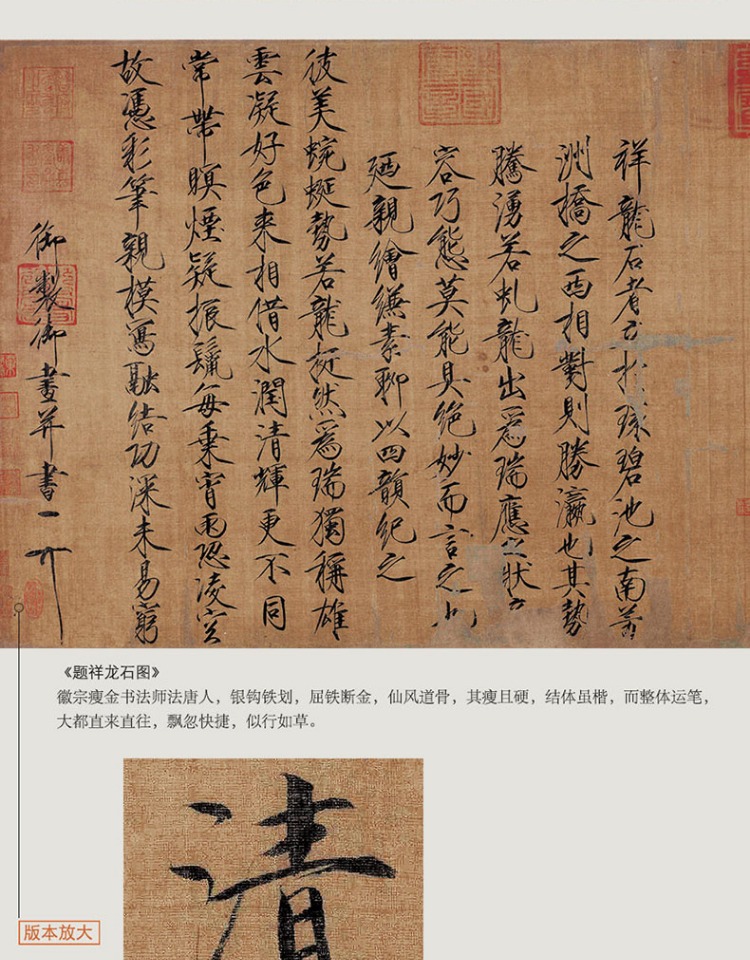 祥龍石者立於環碧池之南芳
洲橋之西相對則勝瀛也其勢
騰湧若虬龍出為瑞應之狀奇
容巧態莫能具絕妙而言之也
廼親繪縑素聊以四韻紀之
彼美蜿蜒勢若龍挺然為瑞獨稱雄
雲凝好色來相借水潤清輝更不同
常帶暝煙疑振鬣每乘宵雨恐凌空
故憑彩筆親模寫融結功深未易窮
御製御畫并書
《题祥龙石图》
徽宗瘦金书法师法唐人，银钩铁划，屈铁断金，仙风道骨，其瘦且硬，结体虽楷，而整体运笔，
大都直来直往，飘忽快捷，似行如草。
清
版本放大